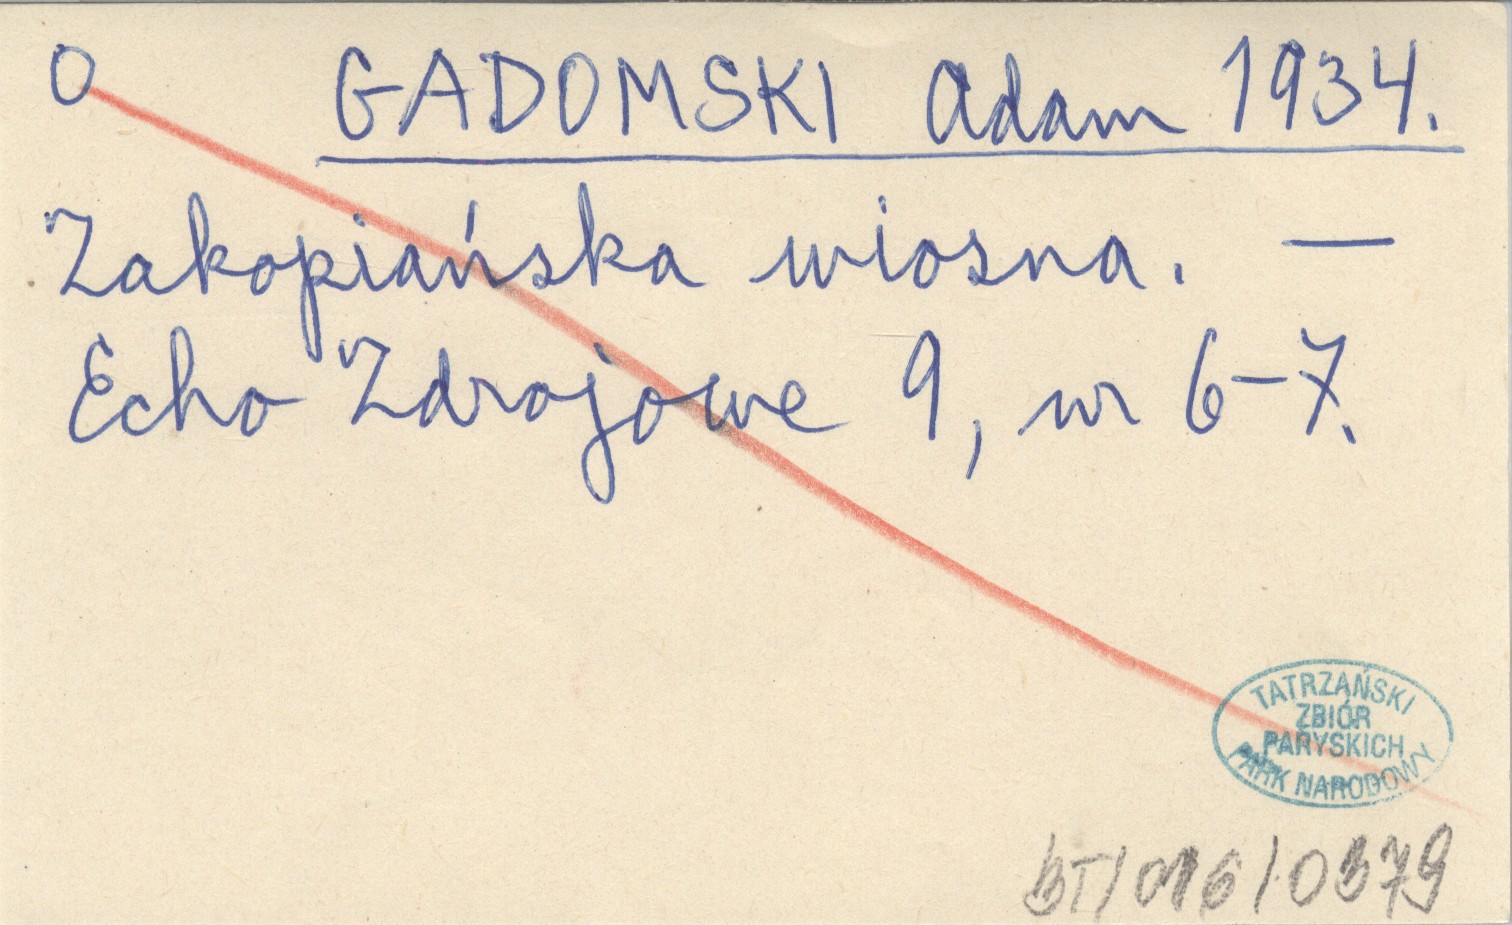 O GADOMSKI Adam 1934.
Zakopiańska wiosna. —
Echo Zdrojowe 9, nr 6-7.
TATRZAŃSKI
ZBIÓR
PARYSKICH
PARK NARODOWY
BT/016/0379